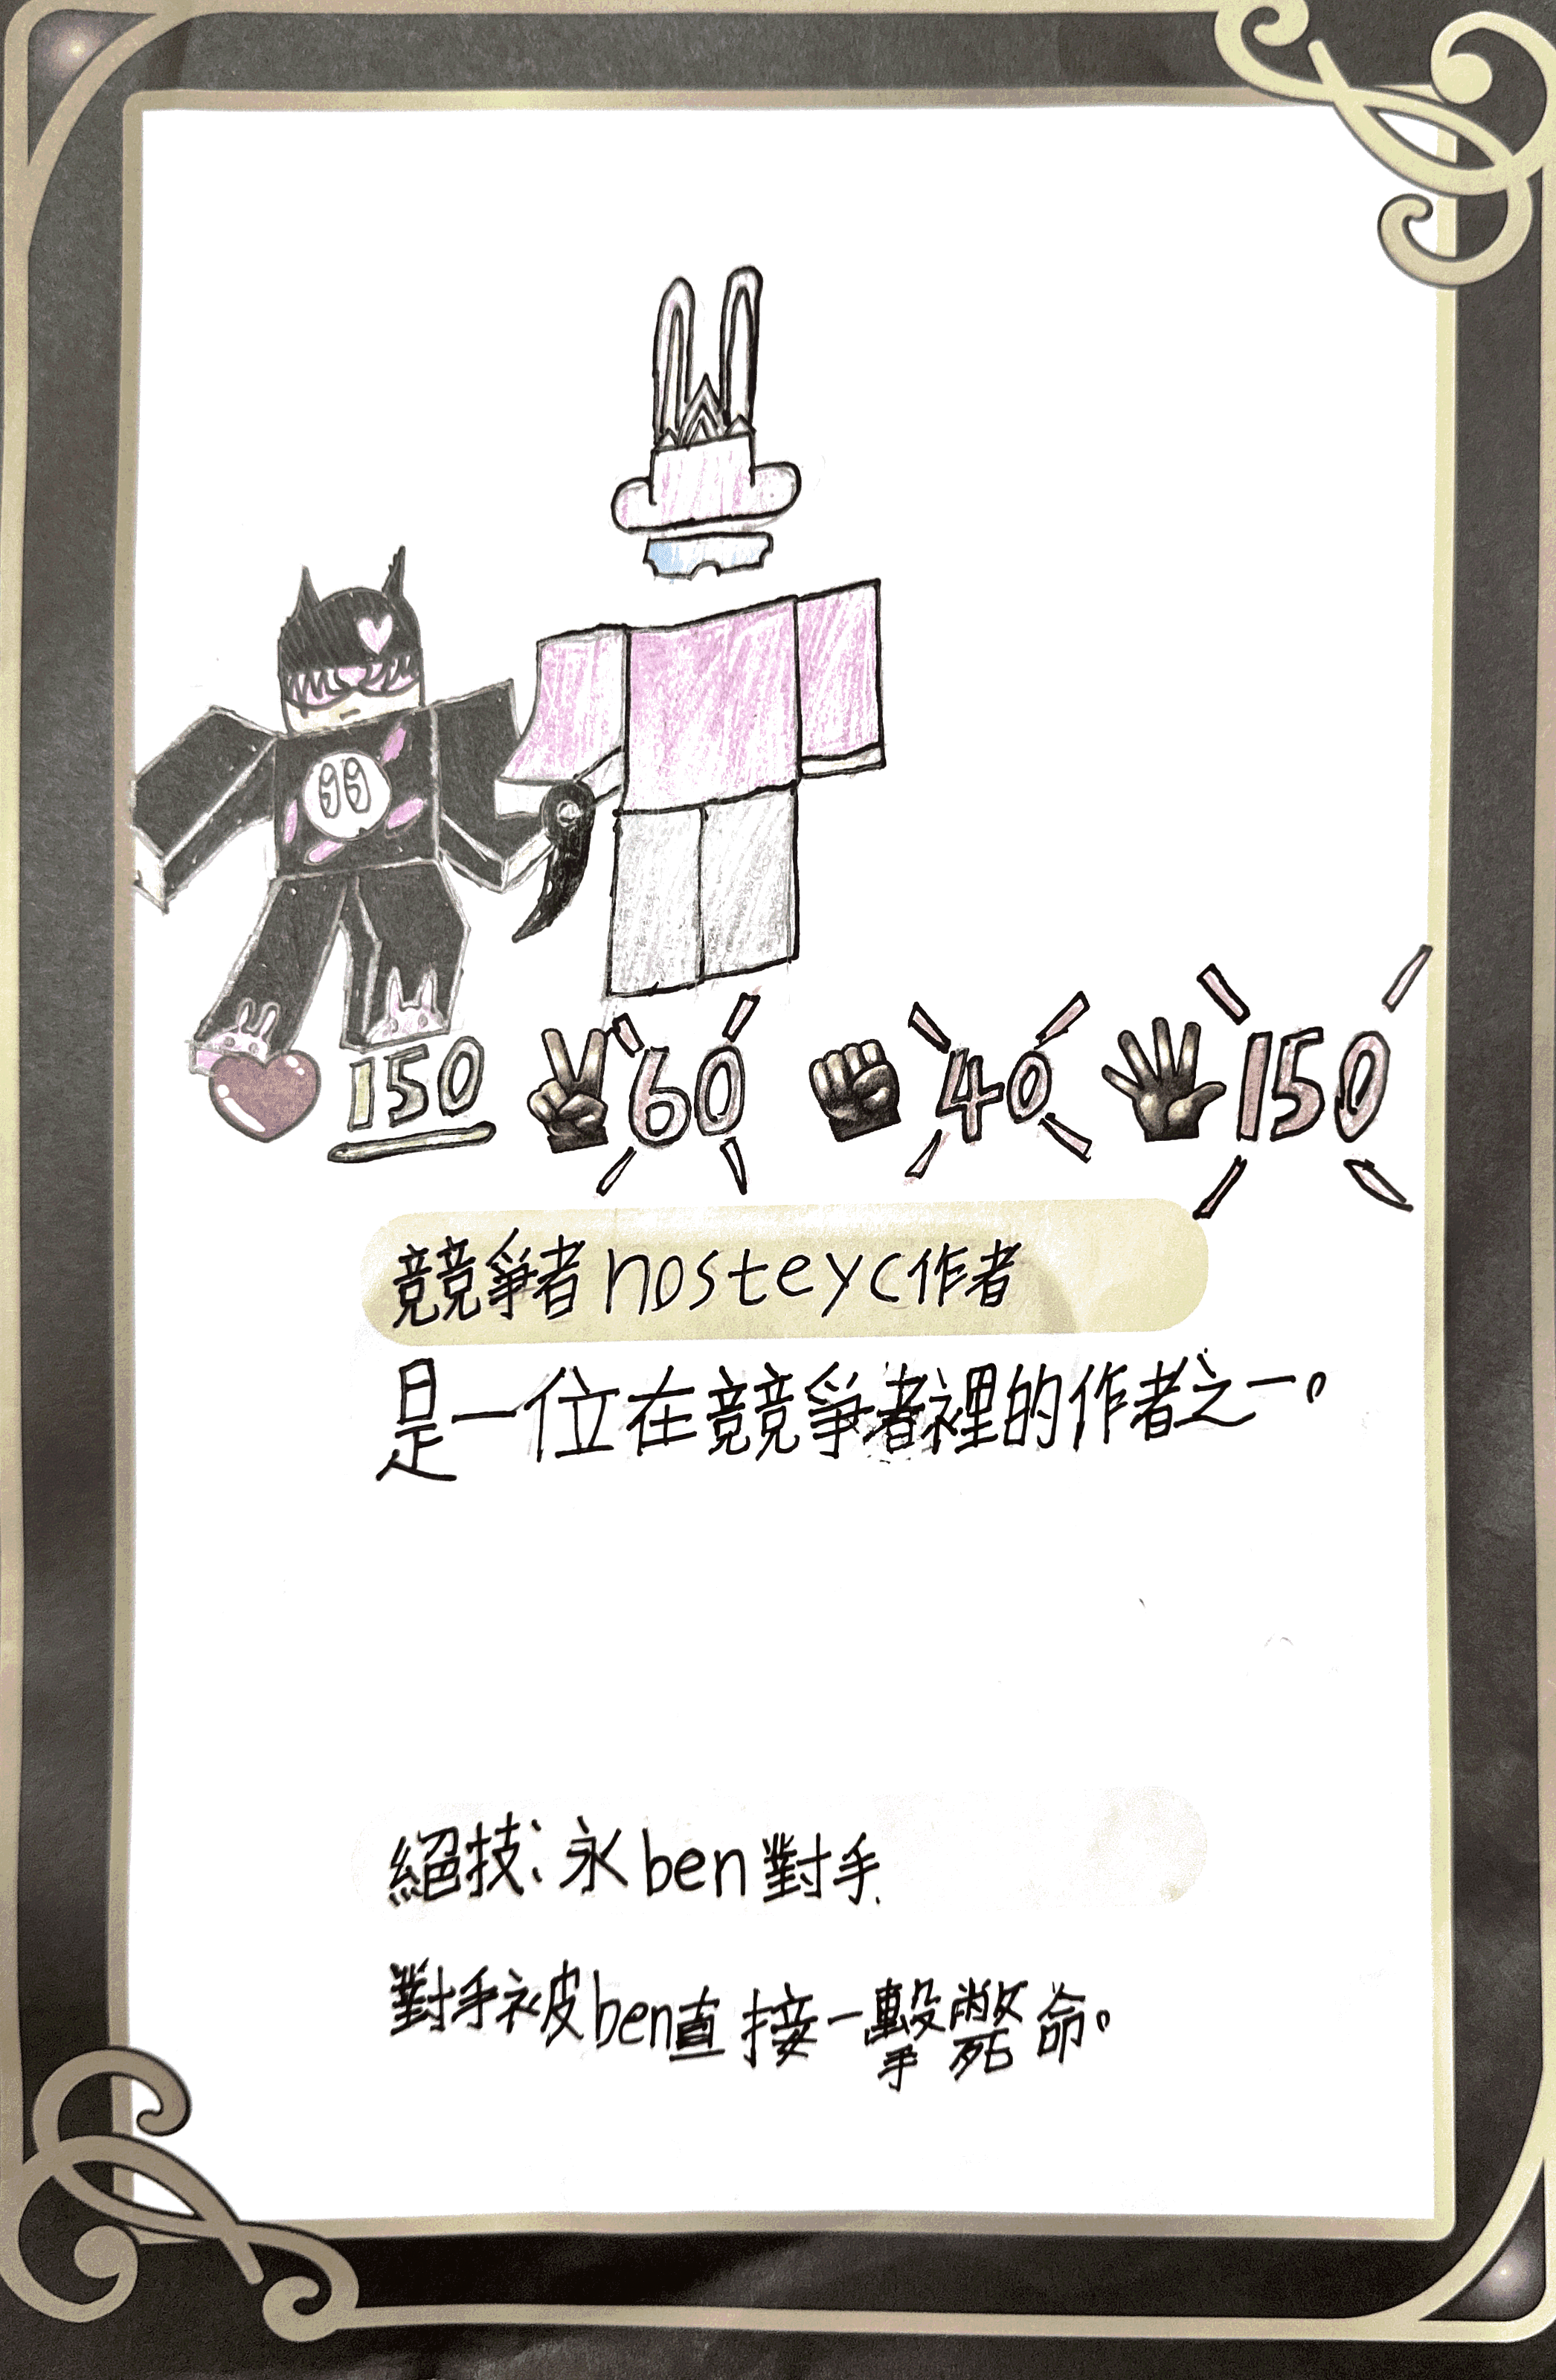 99
150 60 40 150
競爭者nosteyc作者
是一位在競爭者裡的作者之一。
絕技:永ben對手
對手被ben直接一擊斃命。